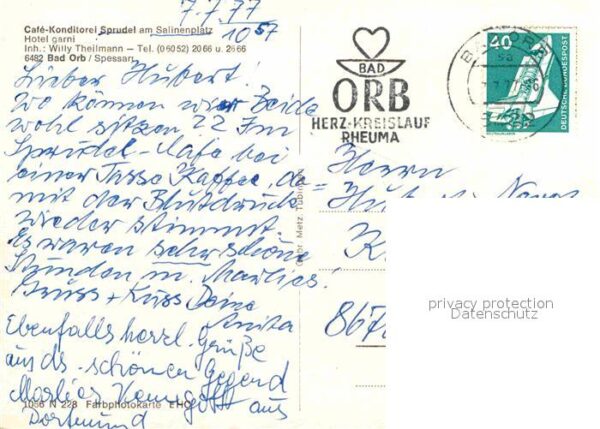 7.7.77
Café-Konditorei Sprudel am Salinenplatz
10 57
Hotel garni
Inh.: Willy Theilmann — Tel. (06052) 2066 u. 2666
6482 Bad Orb / Spessart
Lieber Hubert!
Wo können wir Beide
wohl sitzen?? Im
Sprudel-Cafe bei
einer Tasse Kaffee, da-
mit der Blutdruck
wieder stimmt.
Es waren sehr schöne
Stunden m. Marlies!
Gruss + Kuss Deine
Anita
Ebenfalls herzl. Grüße
aus ds. schönen Gegend
Marlies aus
Dortmund
1056 N 228 Farbphotokarte EHC
Gebr. Metz Tübingen
BAD
ORB
HERZ-KREISLAUF
RHEUMA
BAD ORB
40
DEUTSCHE BUNDESPOST
Herrn
K
867
privacy protection
Datenschutz